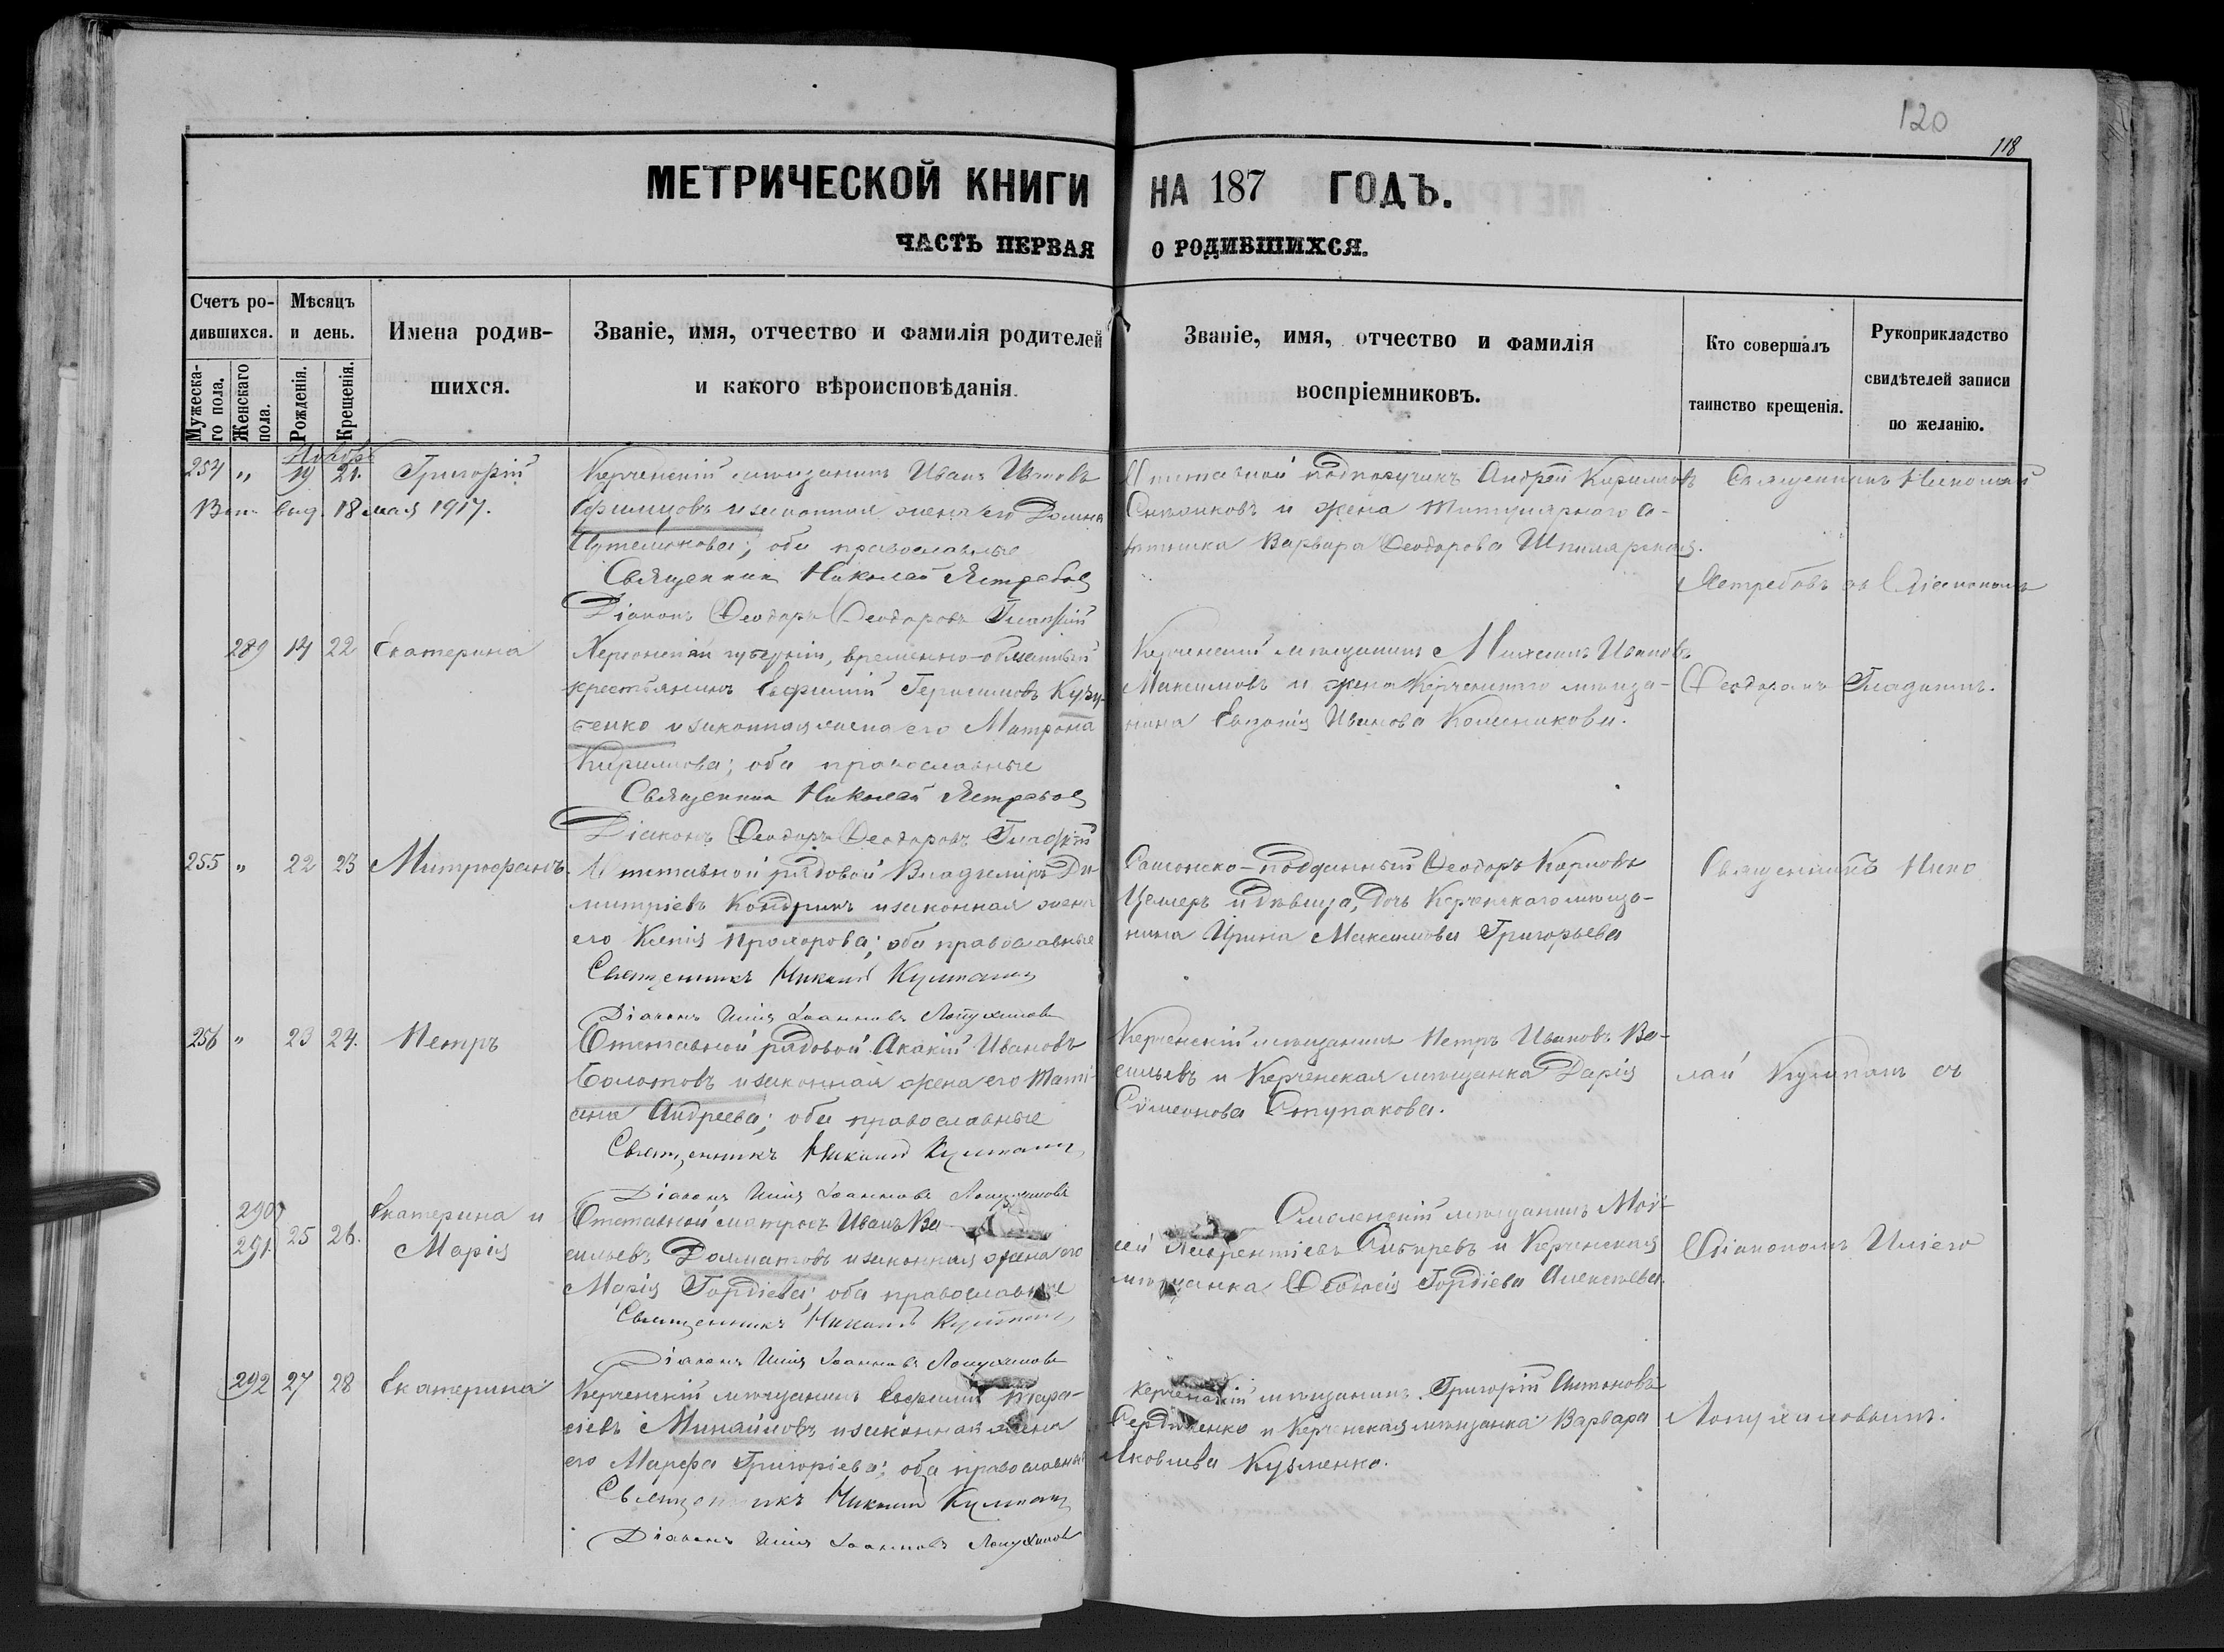 120
118
МЕТРИЧЕСКОЙ КНИГИ НА 187 ГОДЪ.
ЧАСТЬ ПЕРВАЯ О РОДИВШИХСЯ.
Счетъ ро-
дившихся.
Мужеска-
го пола.
Женскаго
пола.
Мѣсяцъ
и день.
Рожденія.
Крещенія.
Имена родив-
шихся.
Званіе, имя, отчество и фамилія родителей
и какого вѣроисповѣданія.
Званіе, имя, отчество и фамилія
воспріемниковъ.
Кто совершалъ
таинство крещенія.
Рукоприкладство
свидѣтелей записи
по желанію.
Ноябрь
254 " 19 21. Григорій
выд. 18 мая 1917.
Керченскій мѣщанинъ Иванъ
и законная жена его Домна
оба православные
Священник Николай Ястребов
Діаконъ Ѳеодоръ Ѳеодоровъ
Отставной подпоручикъ Андрей Кириловъ
и жена титулярнаго
Варвара Ѳеодорова
Священникъ Николай
Ястребовъ съ Діакономъ
289 14 22 Екатерина
Херсонской губерніи, временно-обязанный
крестьянинъ Евфимій Герасимовъ Кузу-
бенко и законная жена его Матрона
Кириллова; оба православные
Священник Николай Ястребов
Діаконъ Ѳеодоръ Ѳеодоровъ
Керченскій мѣщанинъ Михаилъ Ивановъ
Максимовъ и жена Керченскаго мѣща-
нина Иванова
Ѳеодоромъ
255 " 22 23 Митрофанъ.
Отставной рядовой Владиміръ Ди-
митріевъ Кондринъ и законная жена
его Ксенія Прохорова; оба православные
Священникъ
Діаконъ Илія Іоанновъ Лопухиновъ
Саксонско-подданный Ѳеодоръ Карловъ
и дѣвица, дочь Керченскаго мѣща-
нина Ирина Максимова Григорьева
Священникъ Нико
256 " 23 24. Петръ
Отставной рядовой Акакій Ивановъ
Болотовъ и законная жена его Тати-
ана Андреева; оба православные
Священникъ
Діаконъ Илія Іоанновъ Лопухиновъ
Керченскій мѣщанинъ Петръ Ивановъ Ва-
сильевъ и Керченская мѣщанка Дарія
Симеонова Ступакова.
лай съ
290
291. 25 26. Екатерина и
Марія
Отставной матросъ Иванъ Ва-
сильевъ Долматовъ и законная жена его
Марія Гордіева; оба православные
Священникъ
Діаконъ Илія Іоанновъ Лопухиновъ
Смоленскій мѣщанинъ Мои-
сей Лаврентіевъ и Керченская
мѣщанка Гордіева Алексѣева.
Діакономъ Иліею
292 27 28 Екатерина
Керченскій мѣщанинъ Евфимій Тара-
сіевъ и законная жена
его Марфа Григоріева; оба православные
Священникъ
Діаконъ Илія Іоанновъ Лопухиновъ
Керченскій мѣщанинъ Григорій Антоновъ
и Керченская мѣщанка Варвара
Яковлева Кузменко.
Лопухиновымъ.